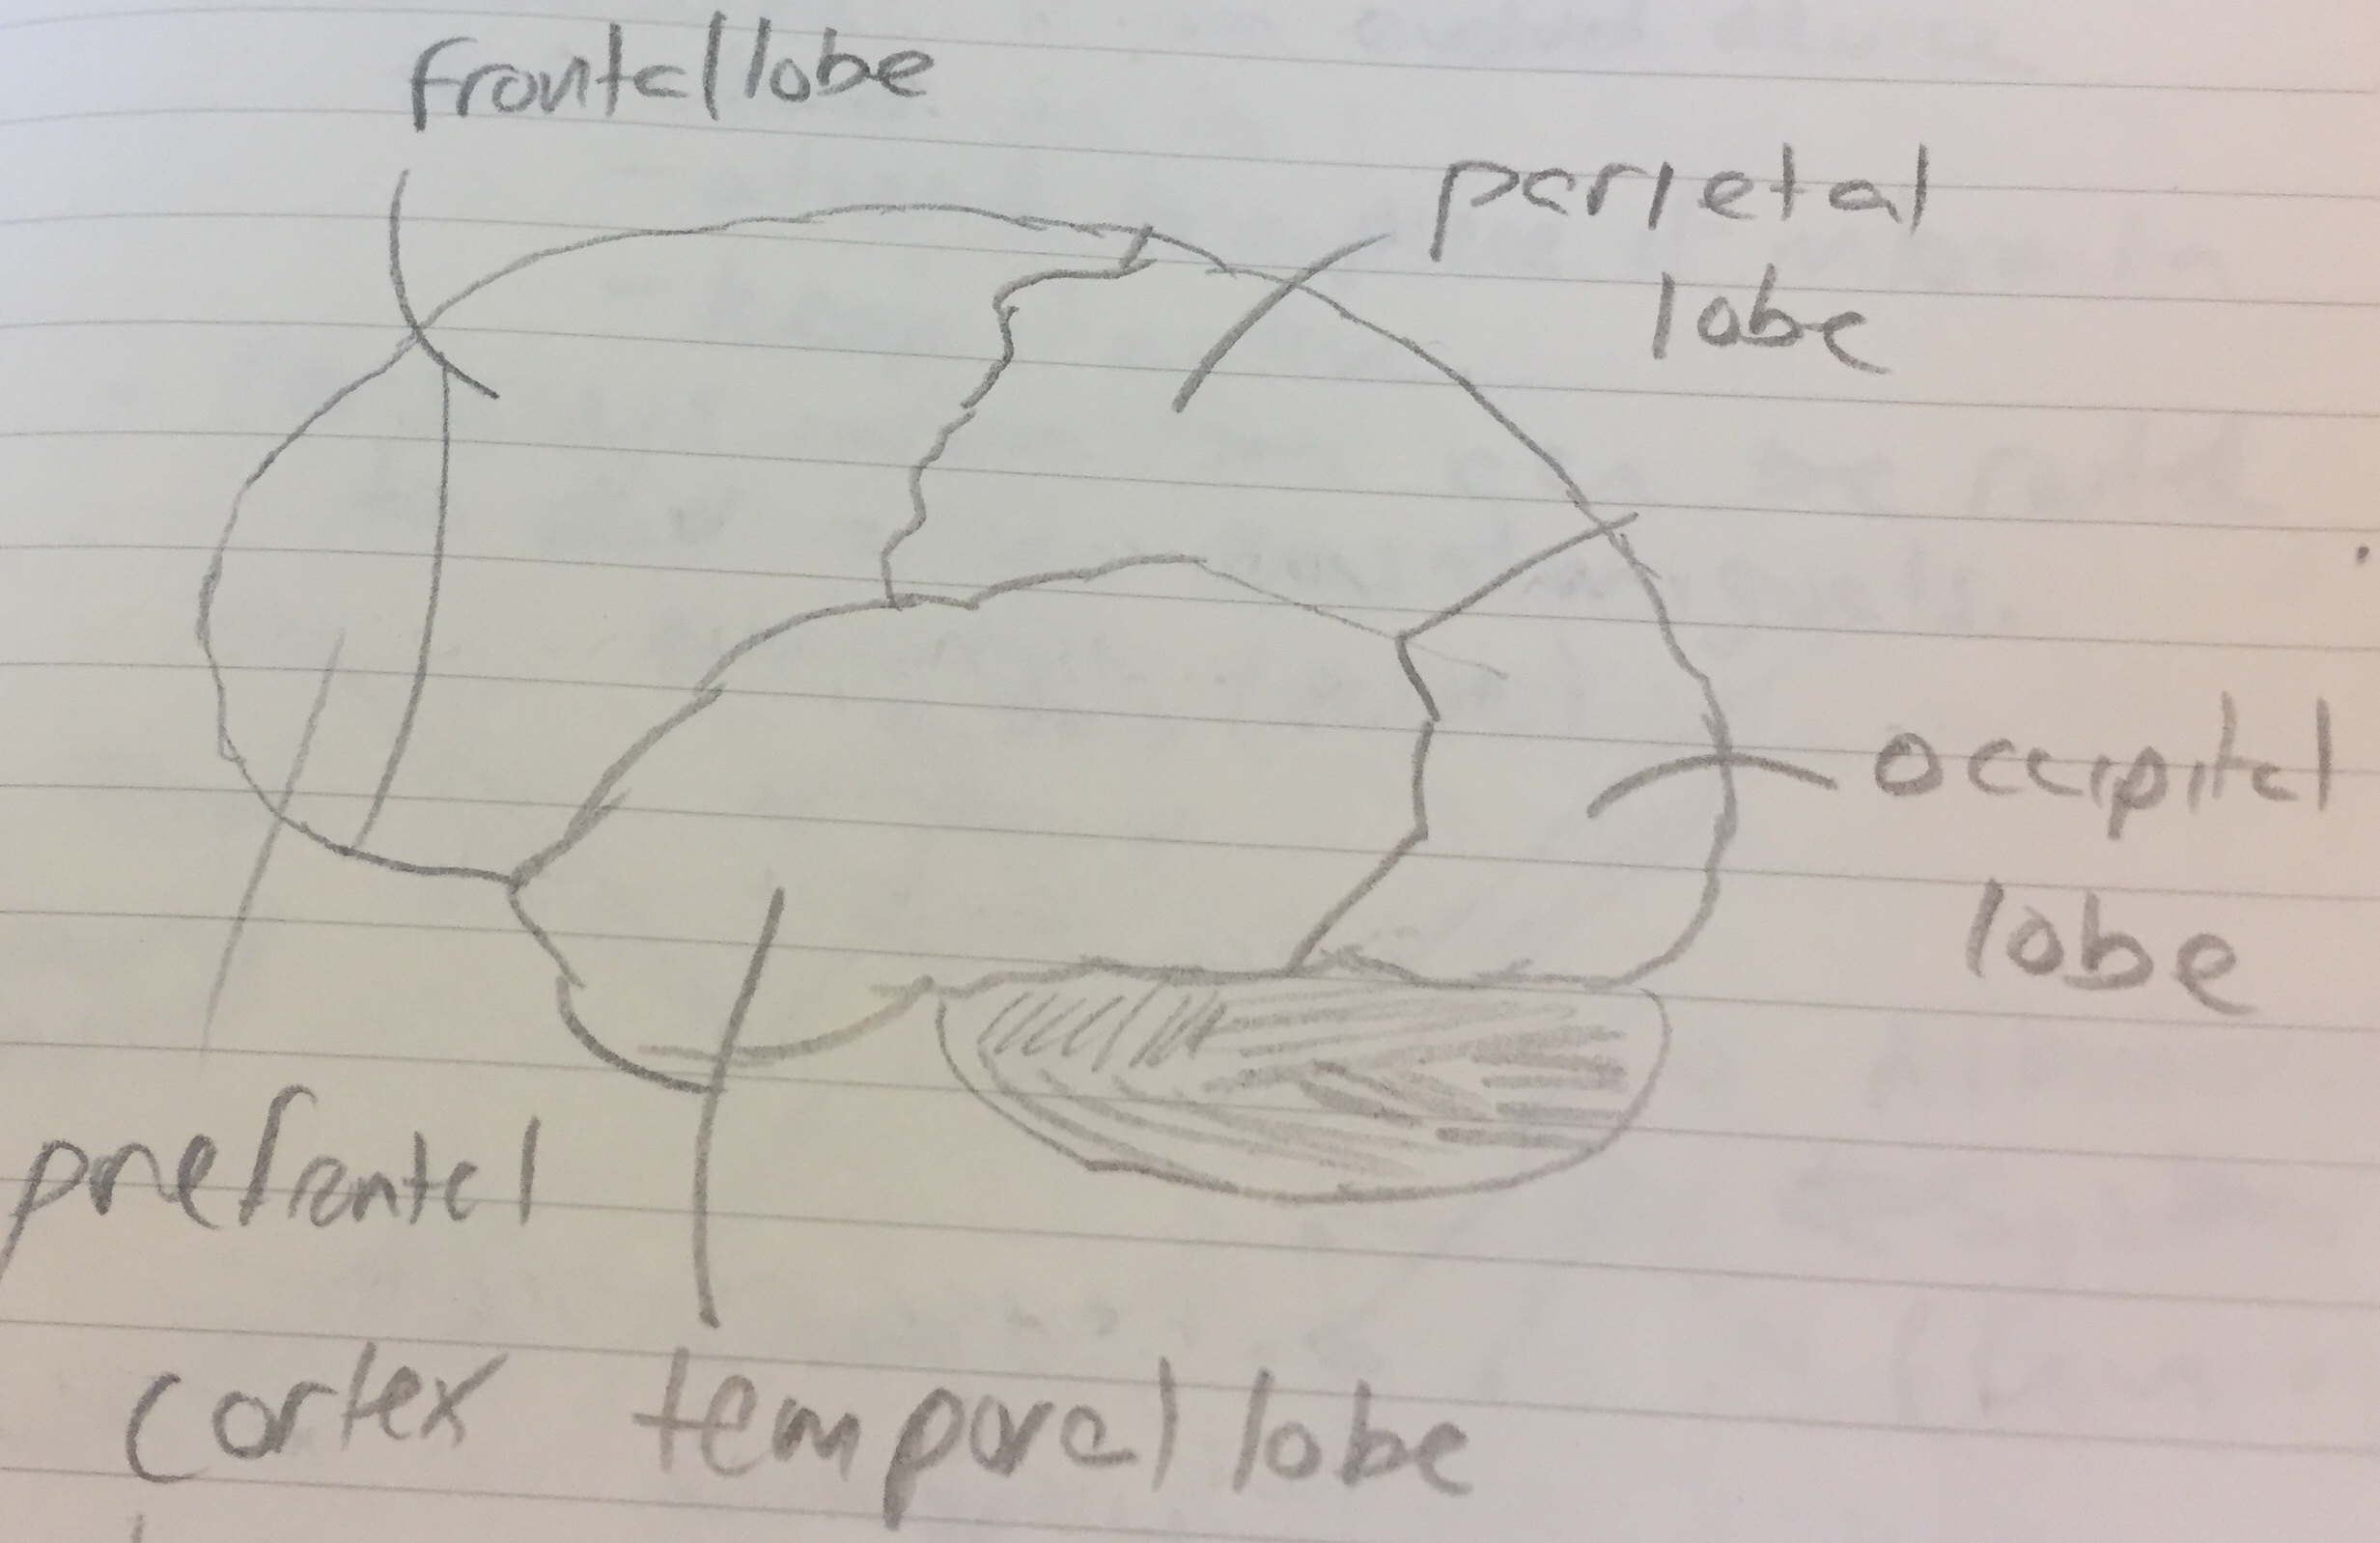 frontal lobe
parietal
lobe
occipital
lobe
prefrontal
cortex
temporal lobe